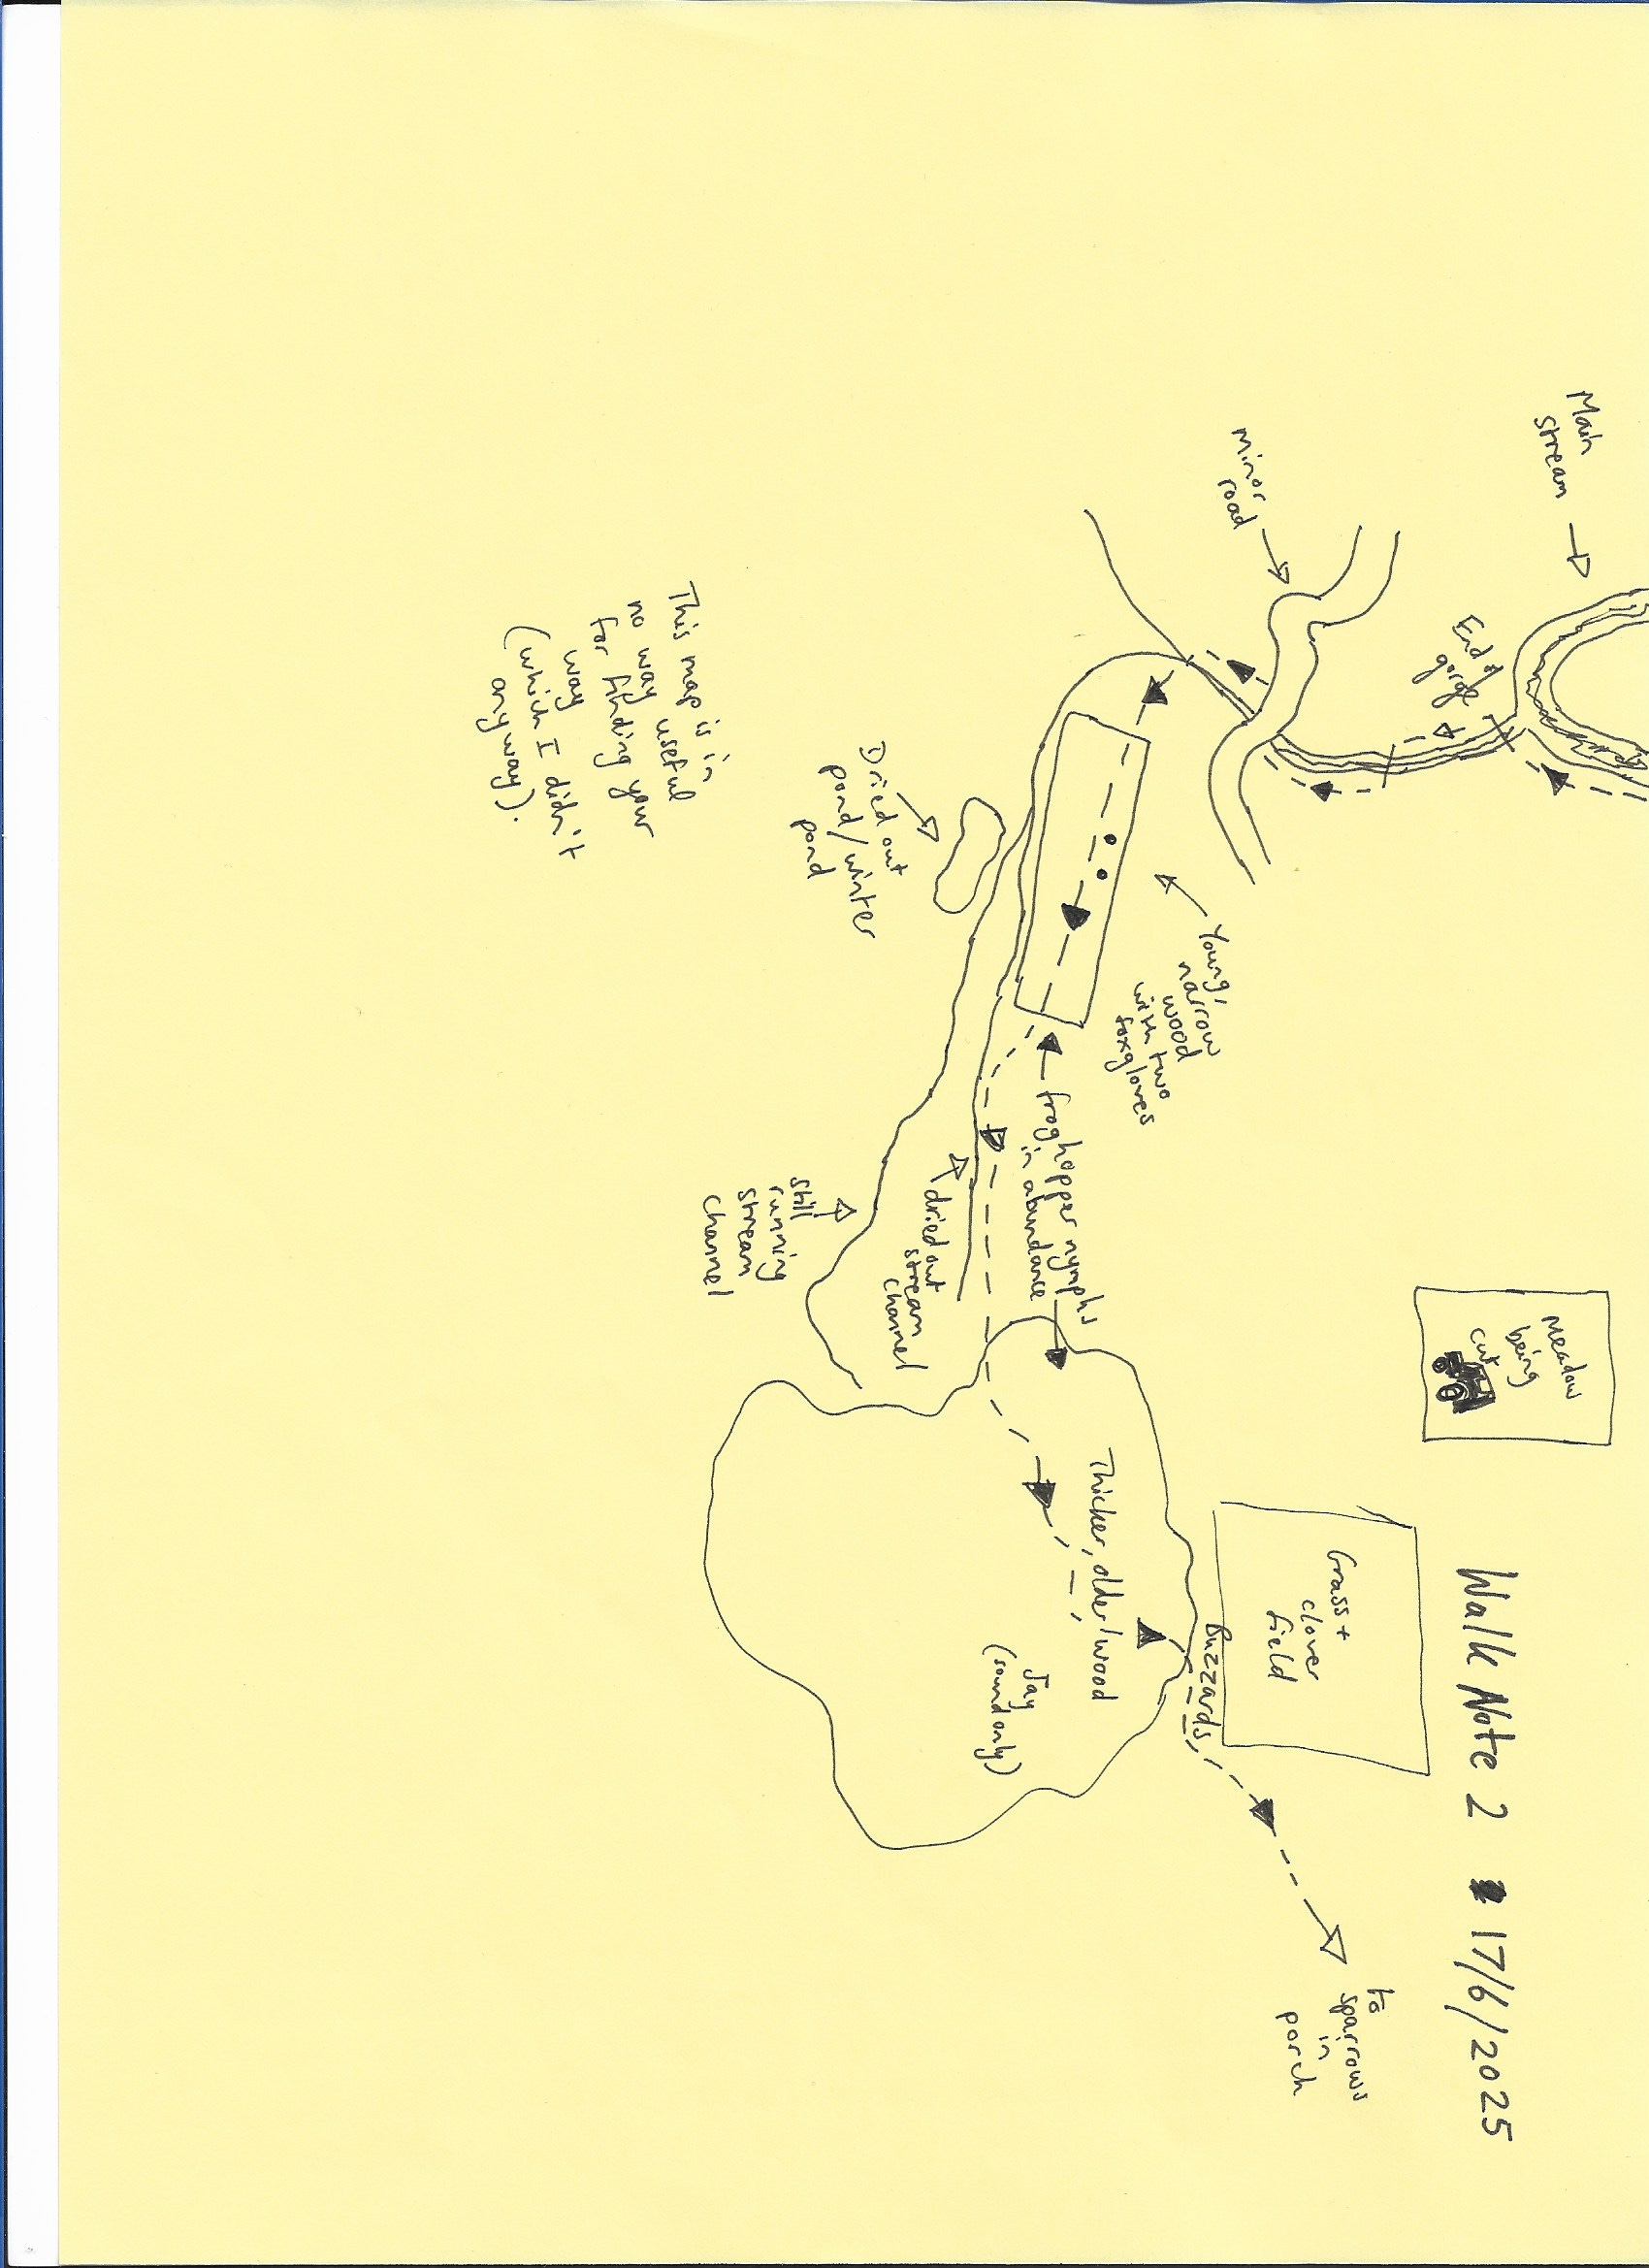 Walk Note 2 17/6/2025
Main
stream
End of
gorge
Minor
road
Meadow
being
cut
Grass +
clover
field
Buzzards
to
sparrows
in
porch
Young,
narrow
wood
with two
foxgloves
froghopper nymphs
in abundance
Thicker, older wood
Jay
(sound only)
Dried out
pond/winter
pond
dried out
stream
channel
still
running
stream
channel
This map is in
no way useful
for finding your
way
(which I didn't
anyway).